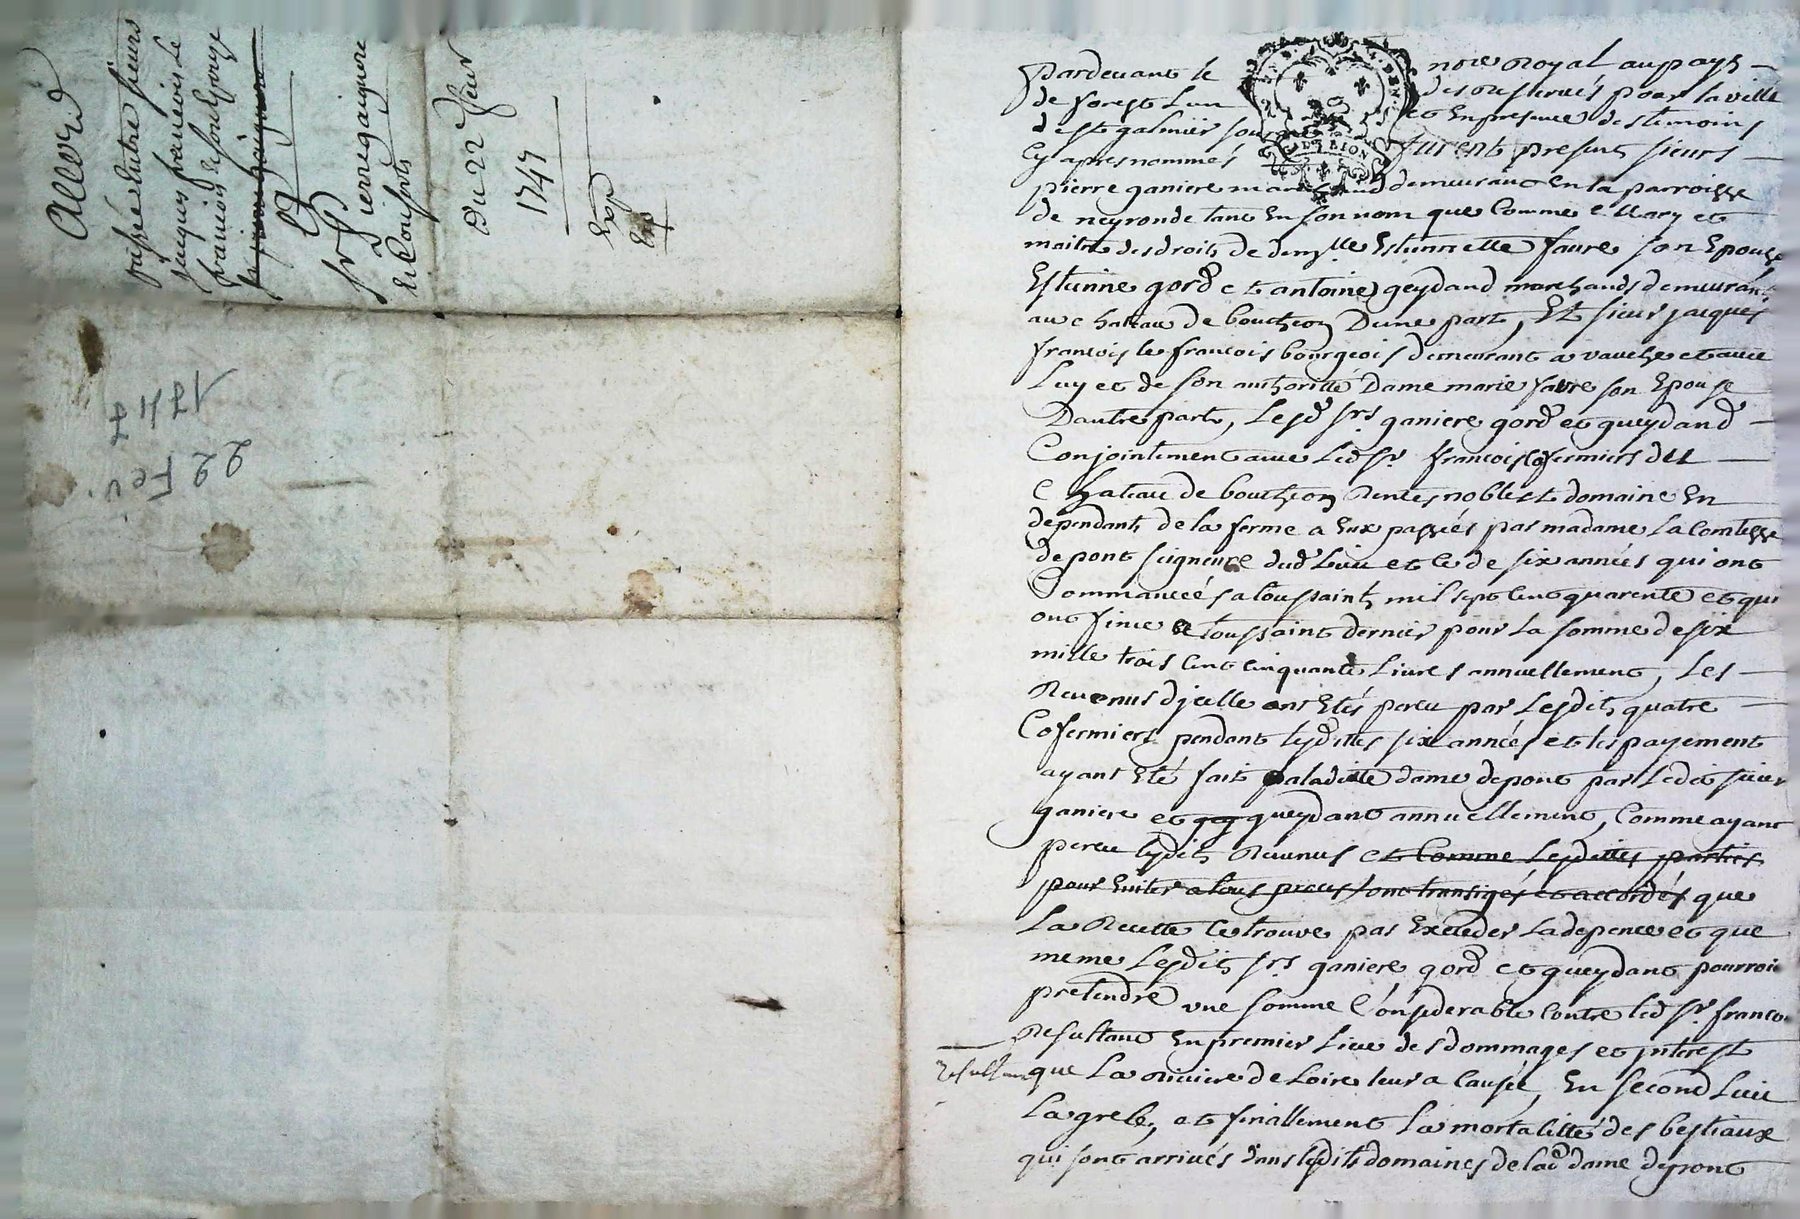 Accord
passé entre sieurs
jacques francois le
francois & son Epouze
Sr pierre gaignere
& Consorts
Du 22 fevr
1747
Exp
Exp
22 Fev.
1747
pardevant le notre Royal au pays
de forest Lun des Reservés pour la ville
de st galmier et En presence des temoins
Cy apres nommés furent presents sieurs
pierre ganiere marchand demeurant en la parroisse
de neyronde tant En son nom que Comme Mary et
maitre des droits de demlle Estiennette faure son Epouse
Estienne gord et antoine geydand marchands demeurant
au chateau de boutheon Dune part, Et sieur jacques
francois le francois bourgeois demeurant a vauche et avec
Luy et de son authorité Dame marie favre son Epouse
Dautre part, Lesd srs ganiere gord et gueydand
Conjointement avec Led sr francois cofermiers du
Chateau de boutheon Rentes nobles et domaine En
dependants de la ferme a Eux passés par madame La Comtesse
de pont seigneure dud Lieu et ce de six années qui ont
Commancées a toussaints mil sept cent quarente et qui
ont finie a toussaint dernier pour La somme de six
mille trois cent cinquante Livres annuellement, Les
Revenus djcelle ont Etés perceu par Lesdits quatre
Cofermiers pendant lesdittes six années et les payement
ayant Eté fait a laditte dame de pont par Ledit sieur
ganiere et gueydant annuellement, Comme ayant
perceu lesdits Revenus et Comme Lesdittes parties
pour Eviter a tous proces sont transigés et accordés que
La Recette ce trouve pas Exceder La depence et que
meme Lesdits srs ganiere gord et gueydant pourroi
pretendre une somme Considerable Contre led sr franco
Resultant En premier Lieu des dommages et jnterest
que La Riviere de Loire leur a Causée, En second Lieu
La grele, et finallement La mortalitté des bestiaux
qui sont arrivés dans lesdits domaines de lad dame de pont